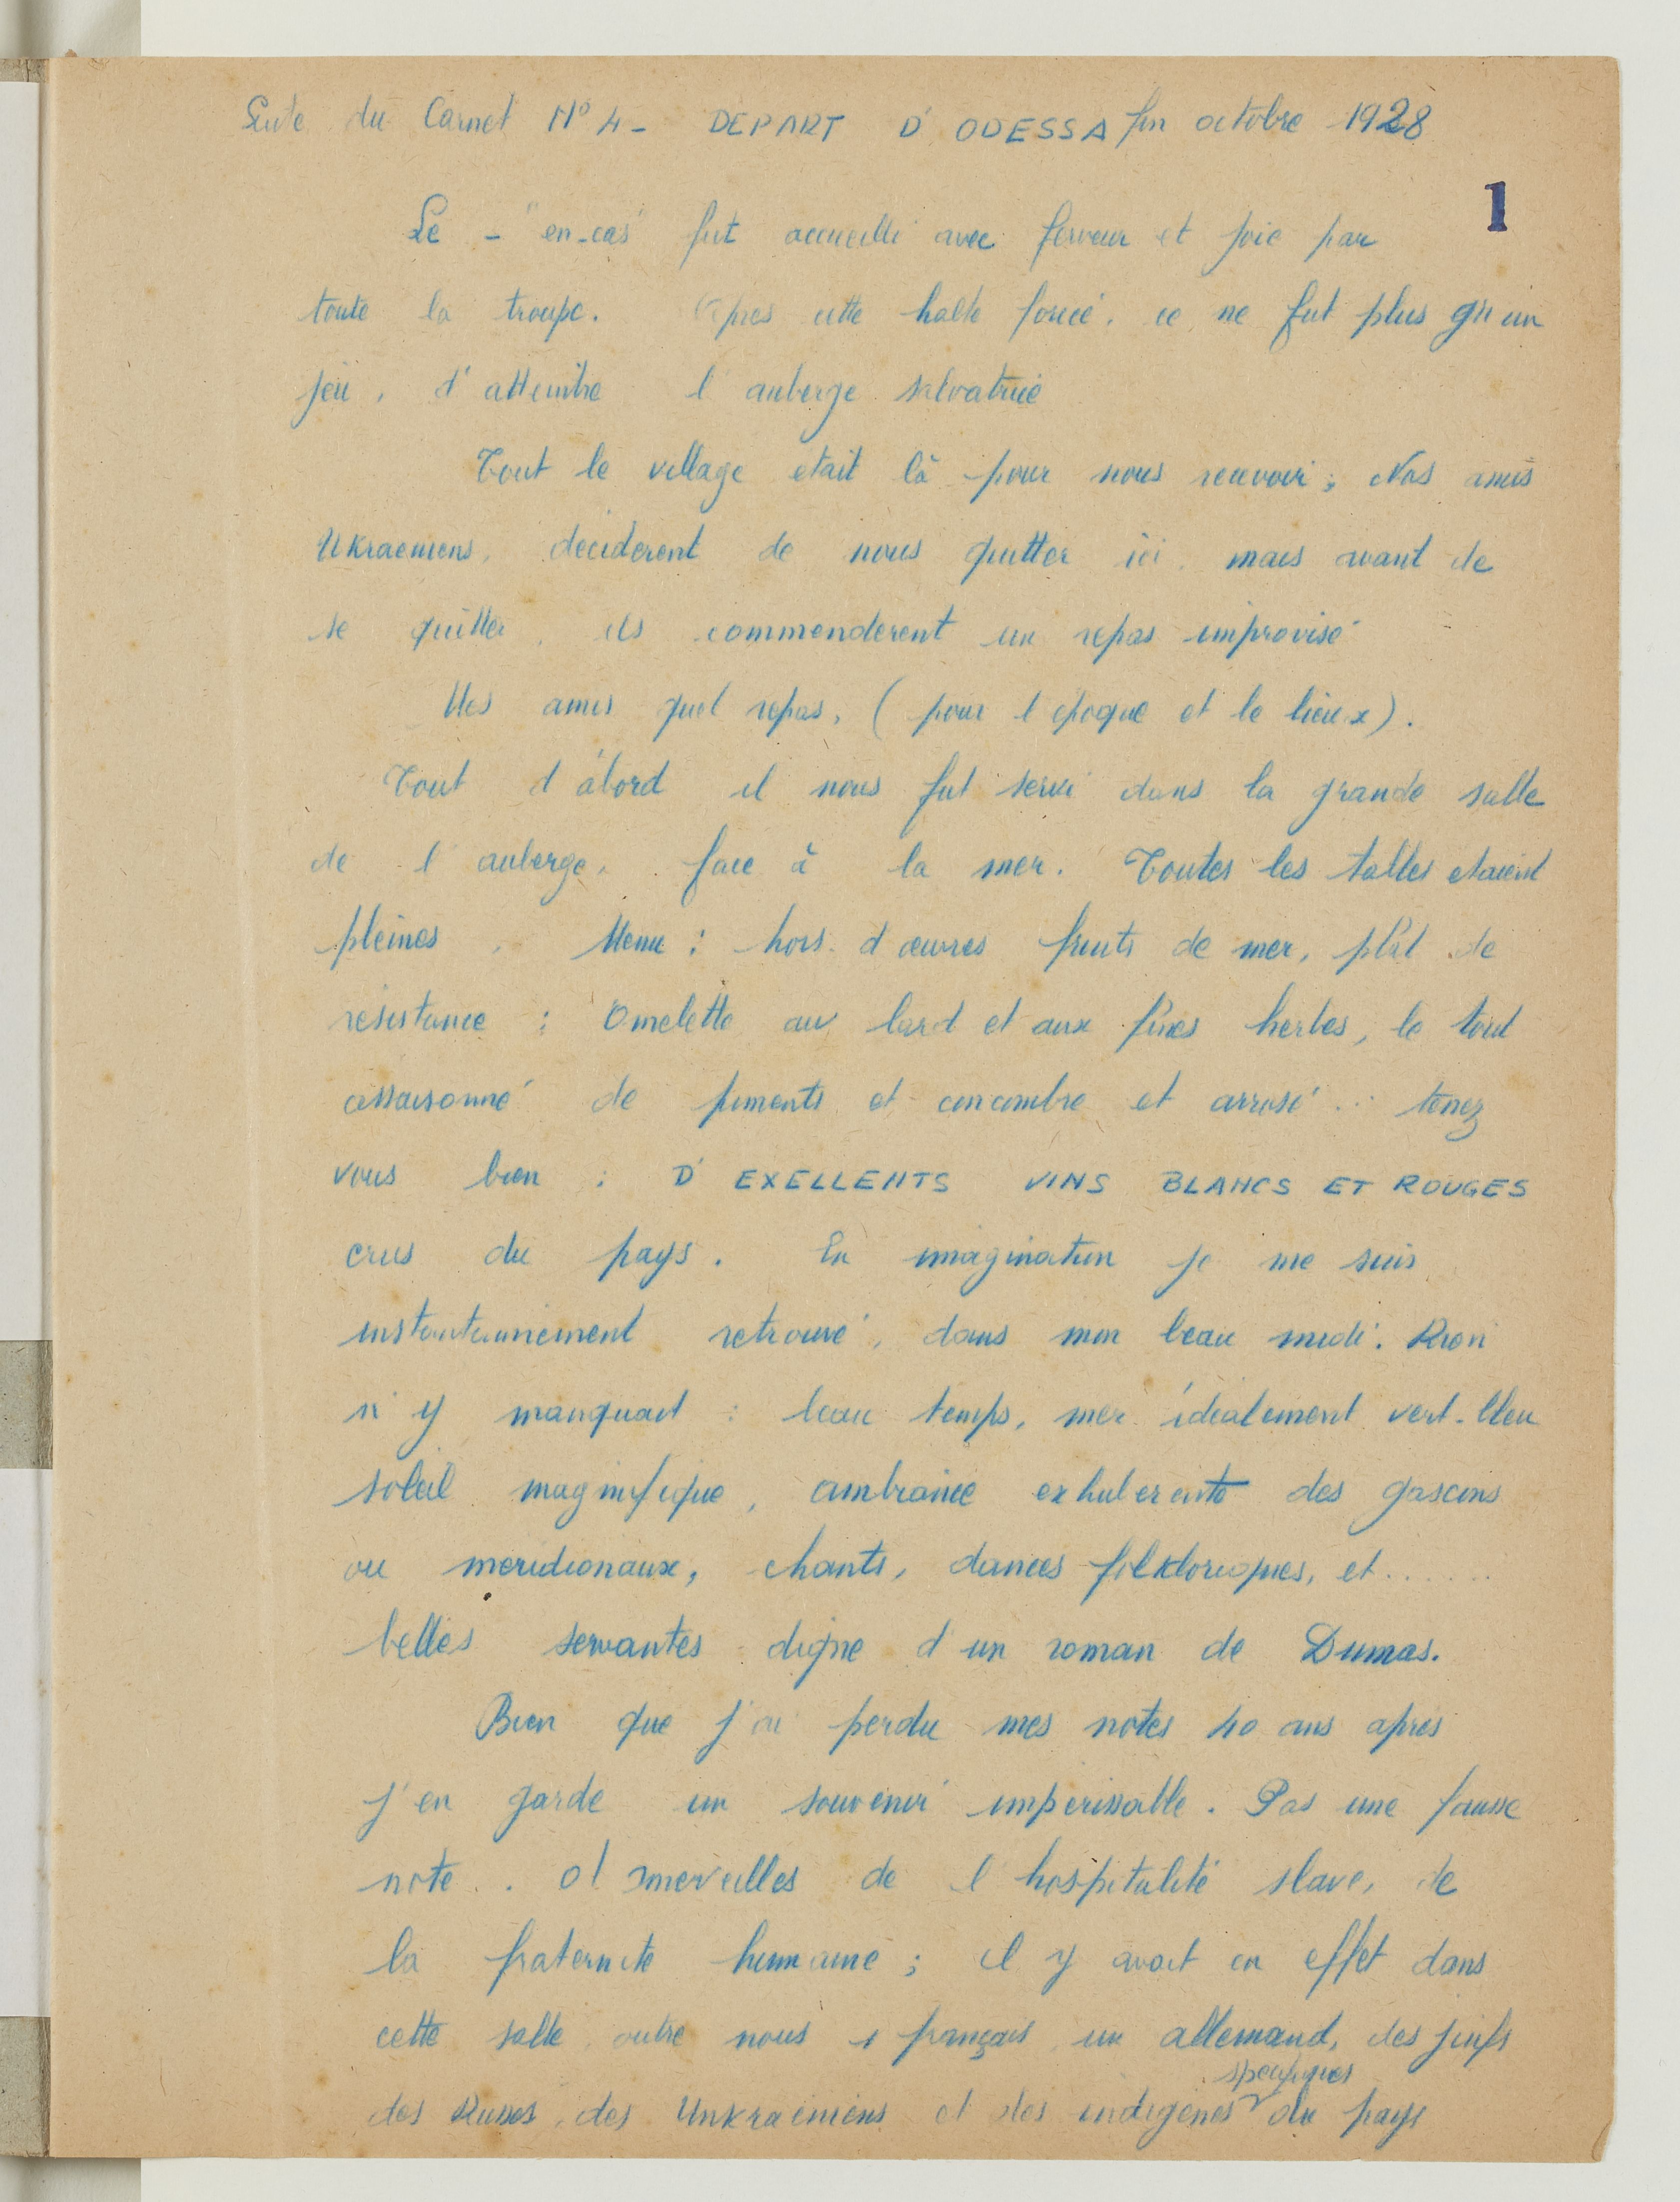 Suite du Carnet N° 4 - DEPART D'ODESSA fin octobre 1928
1
Le - "en-cas" fut accueilli avec ferveur et joie par
toute la troupe. Apres cette halte forcé, ce ne fut plus qu'un
jeu, d'atteindre l'auberge salvatrice
Tout le village etait là pour nous recevoir; Nos amis
Ukraeniens, deciderent de nous quitter ici. mais avant de
se quitter, ils commenderent un repas improvisé
Mes amis quel repas, (pour l'epoque et le lieux).
Tout d'abord il nous fut servi dans la grande salle
de l'auberge, face à la mer. Toutes les tables etaient
pleines. Menu : hors d'œuvres fruits de mer, plat de
résistance : Omelette au lard et aux fines herbes, le tout
assaisonné de piments et concombre et arrosé ... tenez
vous bien : D'EXELLENTS VINS BLANCS ET ROUGES
crus du pays. En imagination je me suis
instantannément retrouvé, dans mon beau midi. Rien
n'y manquait : beau temps, mer idéalement vert-bleu
soleil magnifique, ambiance exhuberente des gascons
ou meridionaux, chants, dances folkloriques, et ......
belles servantes digne d'un roman de Dumas.
Bien que j'ai perdu mes notes 40 ans apres
j'en garde un souvenir imperissable. Pas une fausse
note. O! merveilles de l'hospitalité slave, de
la fraternité humaine; il y avait en effet dans
cette salle, outre nous français, un allemand, des juifs
specifiques
des Russes, des Unkraéniens et des indigenes du pays